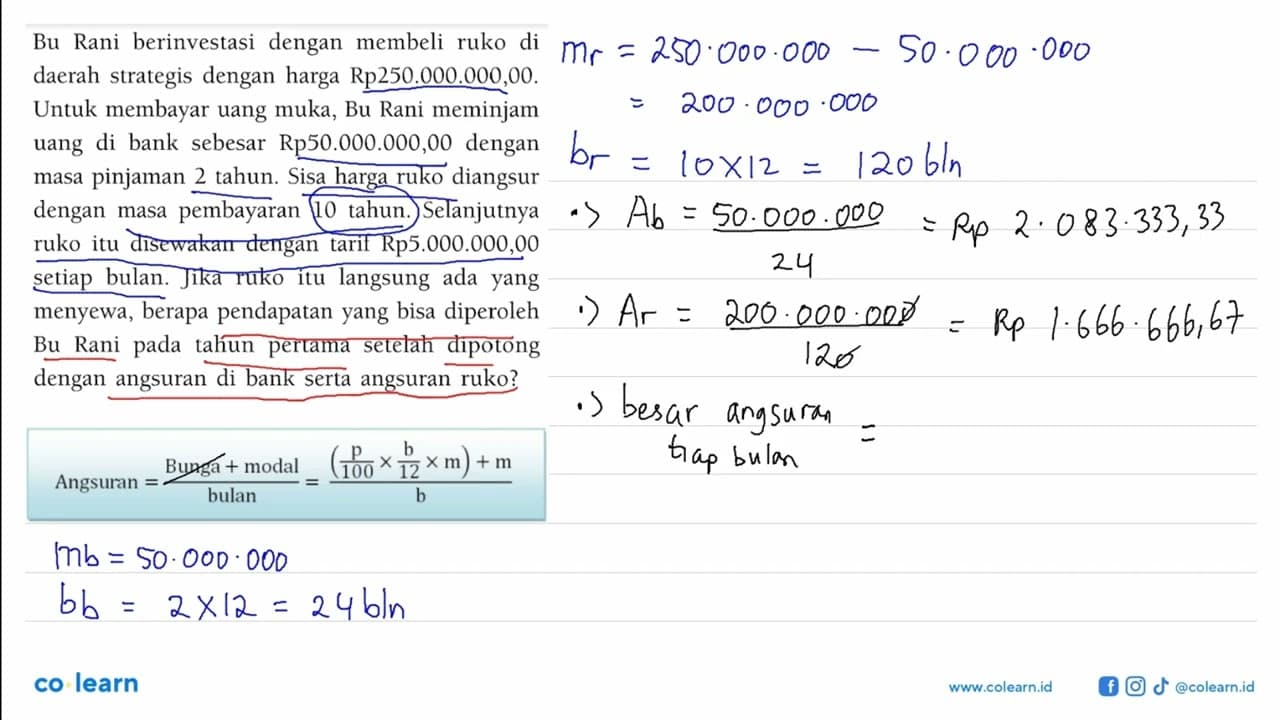 Bu Rani berinvestasi dengan membeli ruko di
daerah strategis dengan harga Rp250.000.000,00.
Untuk membayar uang muka, Bu Rani meminjam
uang di bank sebesar Rp50.000.000,00 dengan
masa pinjaman 2 tahun. Sisa harga ruko diangsur
dengan masa pembayaran 10 tahun. Selanjutnya
ruko itu disewakan dengan tarif Rp5.000.000,00
setiap bulan. Jika ruko itu langsung ada yang
menyewa, berapa pendapatan yang bisa diperoleh
Bu Rani pada tahun pertama setelah dipotong
dengan angsuran di bank serta angsuran ruko?
Angsuran = Bunga + modal / bulan = (p/100 × b/12 × m) + m / b
mb = 50.000.000
bb = 2 x 12 = 24 bln
mr = 250.000.000 - 50.000.000
= 200.000.000
br = 10 x 12 = 120 bln
•> Ab = 50.000.000 / 24 = Rp 2.083.333,33
•> Ar = 200.000.000 / 120 = Rp 1.666.666,67
•> besar angsuran =
tiap bulan
co learn
www.colearn.id
@colearn.id